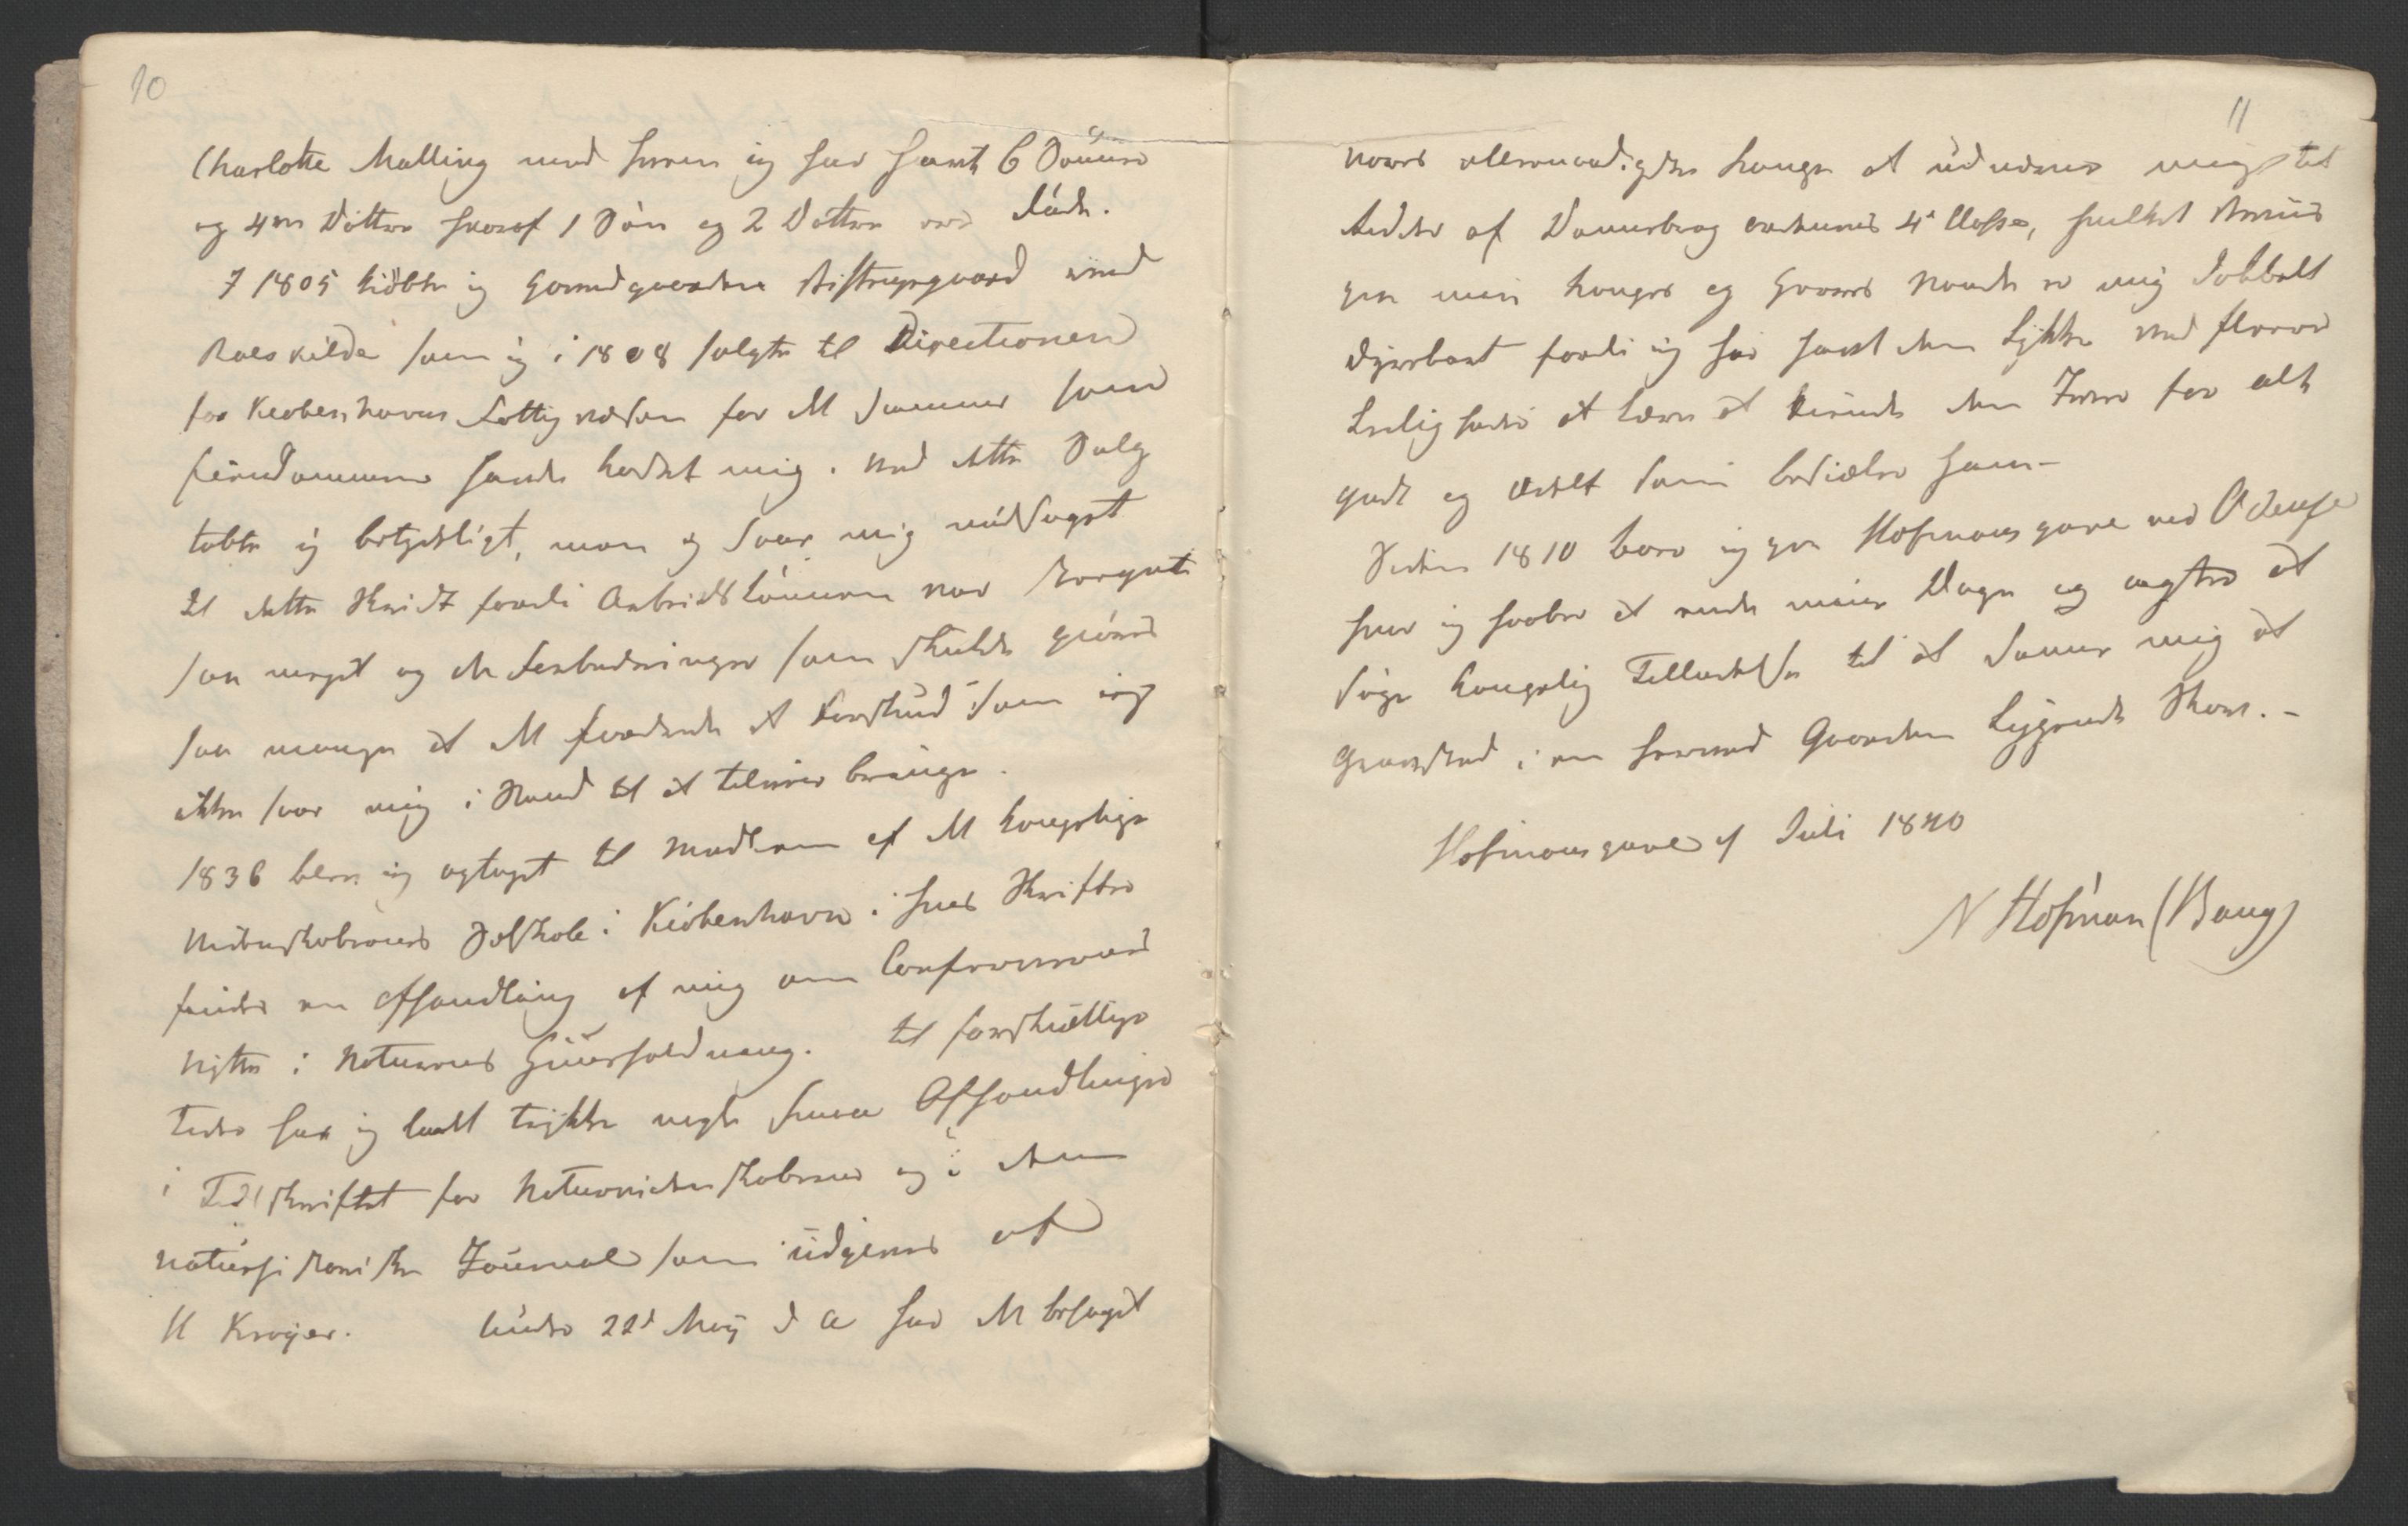 10
Charlotte Malling med hvem ig har havt 6 Sönner
og 4re Döttre hvoraf 1 Sön og 2 Döttre ere döde.
I 1805 kiöbte ig Herregaarden Bistrupgaard ved
Roeskilde som ig i 1808 solgte til Directionen
for Kiøbenhavns Fattigvæsen for de Summer som
Eiendommen havde kostet mig. ved dette Salg
tabte ig betydeligt, men eg saae mig nödsaget
til dette Skridt fordi Arbeidslönnen var steeget
saa meget og de Forbedringer som skulde giöres
saa mange at de fordrede et Forskud som ieg
ikke saae mig i Stand til at tilveie bringe.
1836 blev ig optaget til Medlem af det Kongelige
Videnskabernes Selskab i Kiöbenhavn i hvis Skrifter
findes en Afhandling af mig om Confervernes
Nytte i Naturens Huusholdning. til forskiællige
Tider har ig ladt trykke nogle smaa Afhandlinger
i Tidsskriftet for Naturvidenskaberne og i den
naturhistoriske Journal som udgives af
H Kroyer. Under 22d May d A har det behaget
11
vores allernaadigste Konge at udnævne mig til
Ridder af Dannebrog ordenens 4e Classe, hvilket Beviis
paa min Konges og Herres Naade er mig dobbelt
dyrebart fordi ig har havt den Lykke ved fleere
Leilighede at lære at kiende den Iver for alt
godt og ædelt som besiæler ham-
Siden 1810 boer ig paa Hofmansgave ved Odense
hvor ig haaber at ende mine Dage og agter at
söge Kongelig Tilladelse til at danne mig et
Gravsted i en herved Gaarden liggende Skov.-
Hofmansgave d Juli 1840
N Hofman (Bang)